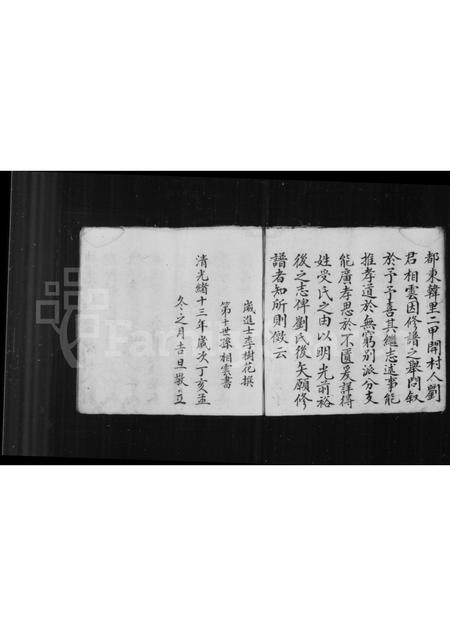 都東韓里二甲開村人劉
君相雲因修譜之舉問叙
於予予喜其繼志述事能
推孝道於無窮别派分支
能廣孝思於不匱爰詳得
姓受氏之由以明光前裕
後之志俾劉氏後矢願修
譜者知所則傚云
歲進士李樹花撰
第十世孫相雲書
清光緒十三年歲次丁亥孟
冬之月吉旦敬立